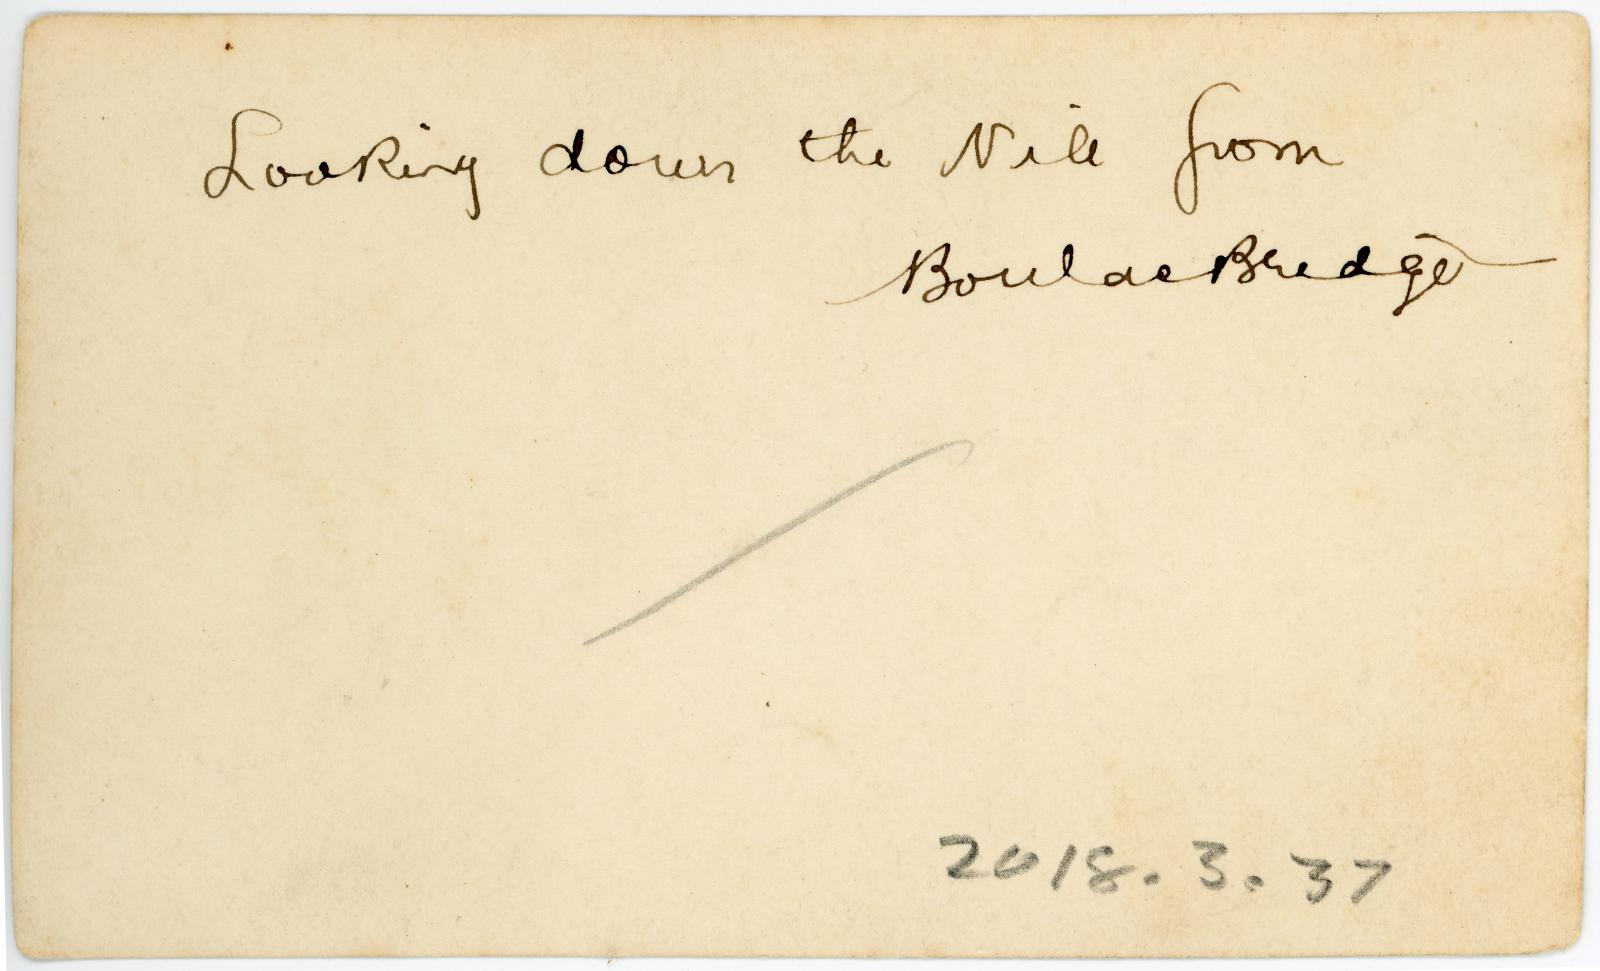 Looking down the Nile from
Boulac Bridge
2018.3.37